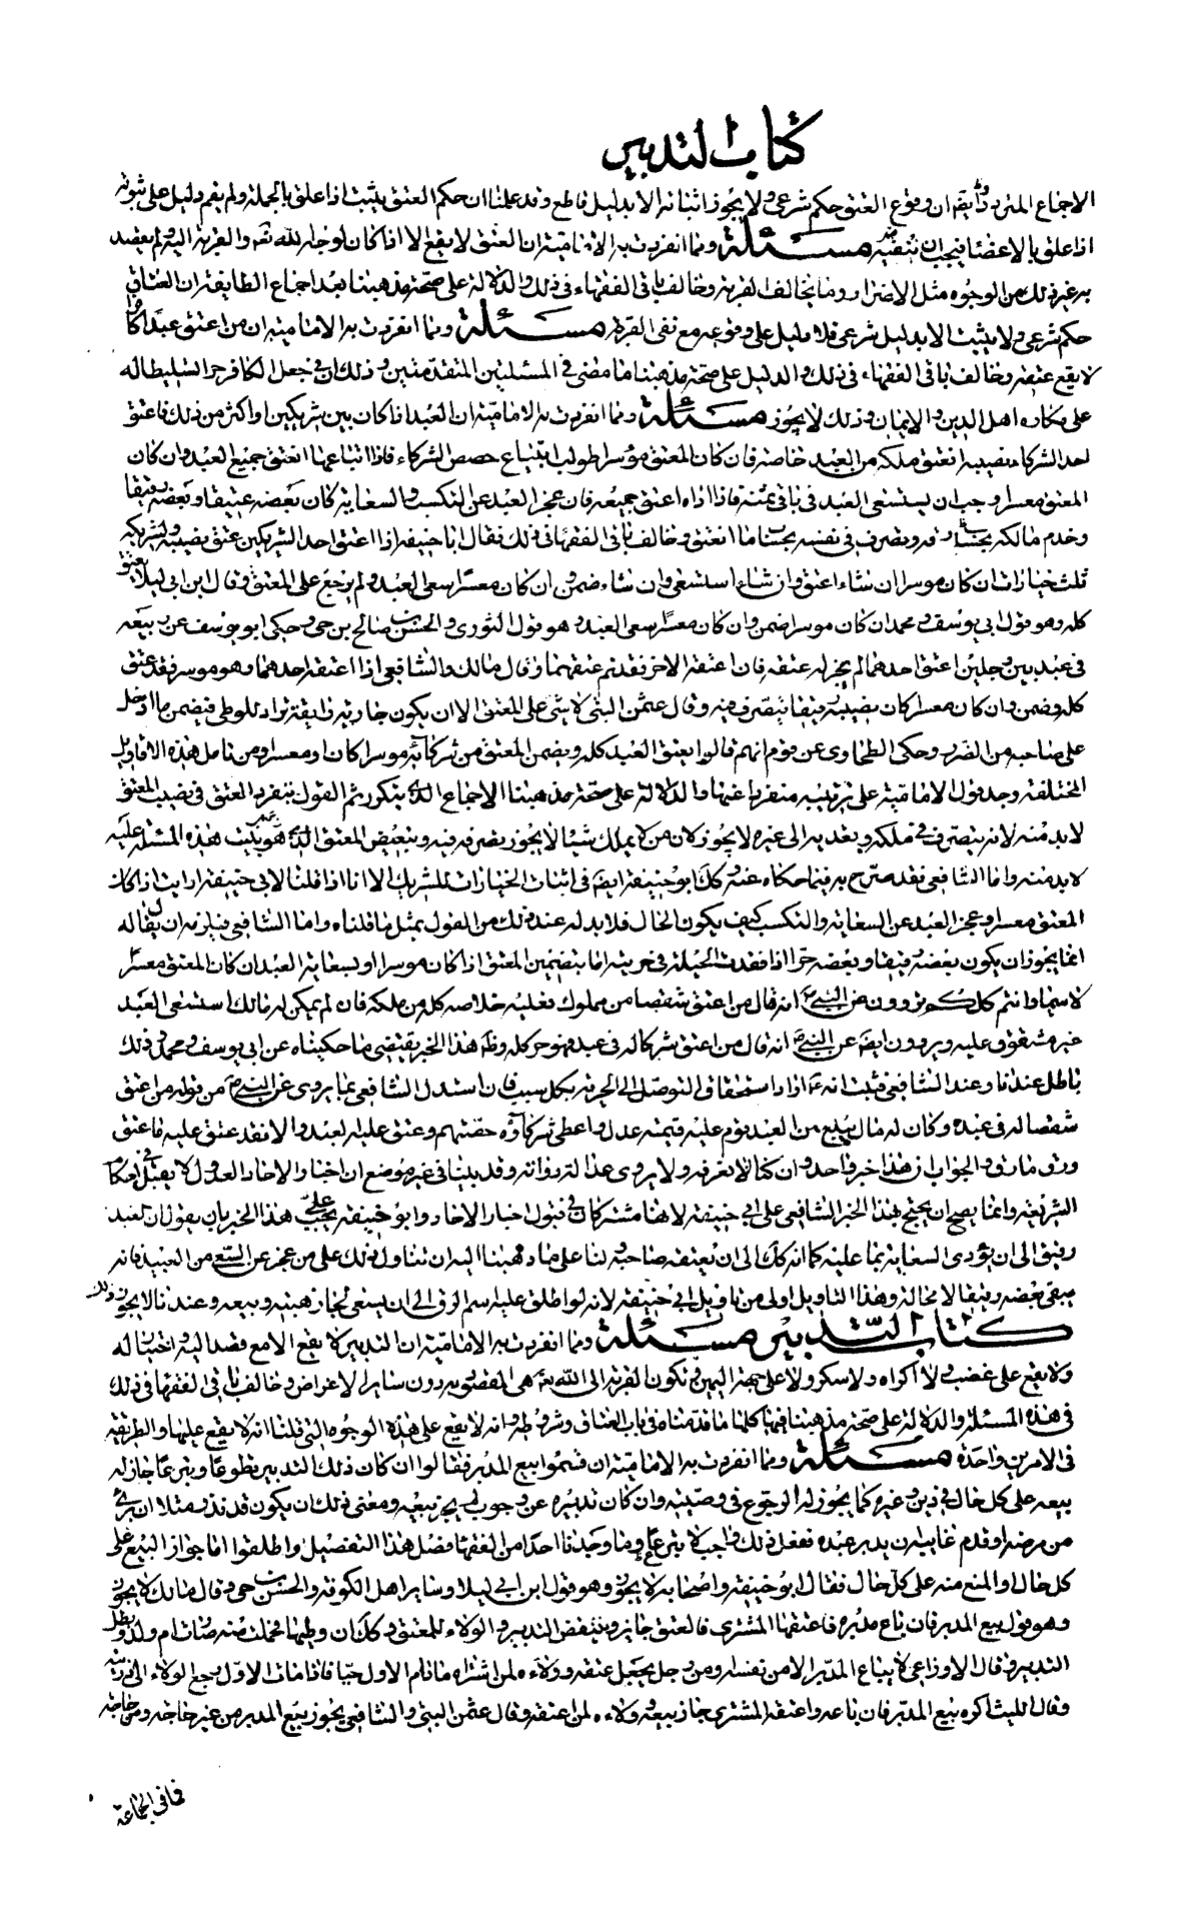 كتاب التدبير
الاجماع المتردد وأيضا فان وقوع العتق حكم شرعي ولا يجوز اثباته الا بدليل قاطع وقد علمنا ان حكم العتق يثبت اذا علق بالجملة ولم يقم دليل على ثبوته
اذا علق بالاعضا فيجب ان ننفيه مسئلة ومما انفردت به الامامية ان العتق لا يقع الا اذا كان لوجه الله تعالى والقربة اليه ولم يقصد
به غير ذلك من الوجوه مثل الاضرار وما يخالف القربة وخالف باقي الفقهاء في ذلك والدلالة على صحة مذهبنا بعد اجماع الطايفة ان العتاق
حكم شرعي ولا يثبت الا بدليل شرعي فلا دليل على وقوعه مع نفي القربة مسئلة ومما انفردت به الامامية ان من اعتق عبدا كافرا
لا يقع عتقه وخالف باقي الفقهاء في ذلك والدليل على صحة مذهبنا ما مضى في المسئلتين المتقدمتين وذلك ان في جعل الكافر حرا تسليطا له
على مكاره اهل الدين والايمان وذلك لا يجوز مسئلة ومما انفردت به الامامية ان العبد اذا كان بين شريكين او اكثر من ذلك فاعتق
احد الشركا نصيبه انعتق ملكه من العبد خاصة فان كان المعتق موسرا طولب بابتياع حصص الشركاء فاذا ابتاعها انعتق جميع العبد وان كان
المعتق معسرا وجب ان يستسعى العبد في باقي ثمنه فاذا اداه اعتق جميعه فان عجز العبد عن التكسب والسعاية كان بعضه عتيقا وبعضه رقيقا
وخدم مالكه بحساب رقه وتصرف في نفسه بحساب ما انعتق وخالف باقي الفقهاء في ذلك فقال ابا حنيفة اذا اعتق احد الشريكين عتق نصيبه ولشريكه
ثلث خيارات ان كان موسرا ان شاء اعتق وان شاء استسعى وان شاء ضمن وان كان معسرا سعى العبد ولم يرجع على المعتق وقال ابن ابي ليلا يعتق
كله وهو قول ابي يوسف ومحمد ان كان موسرا ضمن وان كان معسرا سعى العبد وهو قول الثوري والحسن بن صالح بن حي وحكى ابو يوسف عن ربيعة
في عبد بين رجلين اعتق احدهما لم يجز له عتقه فان اعتقه الاخر فقد تم عتقهما وقال مالك والشافعي اذا اعتقه احدهما وهو موسر فقد عتق
كله وضمن وان كان معسرا كان نصيبه رقيقا يتصرف فيه وقال عثمن البتي لا شي على المعتق الا ان يكون جارية رايقة تراد للوطي فيضمن ما ادخل
على صاحبه من الضرر وحكى الطحاوي عن قوم انهم قالوا يعتق العبد كله ويضمن المعتق من شركائه موسرا كان او معسرا ومن تامل هذه الاقاويل
المختلفة وجد قول الامامية على ترتيبه منفردا عنها والدلالة على صحة مذهبنا الاجماع الذي يتكرر ثم القول بتفرد العتق في نصيب المعتق
لا بد منه لانه يتصرف في ملكه وتعديه الى غيره لا يجوز كان من لا يملك شيئا لا يجوز تصرفه فيه وتبعيض المعتق الذي
لا بد منه واما الشافعي فقد صرح به فيما حكاه عنه وكذلك ابو حنيفة ايضا في اثبات الخيارات للشريك الا انا اذا قلنا لابي حنيفة ارايت اذا كان
المعتق معسرا وعجز العبد عن السعاية والتكسب كيف يكون الحال فلا بد له عند ذلك من القول بمثل ما قلناه واما الشافعي فيلزمه ان يقال له
انما يجوز ان يكون بعضه رقيقا وبعضه حرا اذا فقدت الحيلة في حريته اما بتضمين المعتق اذا كان موسرا او بسعاية العبد ان كان المعتق معسرا
لا سيما وانتم كلكم تروون عن النبي انه قال من اعتق شقصا من مملوك فعليه خلاصه كله من ملكه فان لم يمكن له مال استسعى العبد
غير مشقوق عليه ويروون ايضا عن النبي انه قال من اعتق شركا له في عبد فهو حر كله وظاهر هذا الخبر يقتضي ما حكيناه عن ابي يوسف ومحمد وذلك
باطل عندنا وعند الشافعي فثبت انه اراد استحقاق التوصل الى الحرية بكل سبب فان استدل الشافعي بما يروى عن النبي من قوله من اعتق
شقصا له في عبد وكان له مال يبلغ ثمن العبد قوم عليه قيمة عدل واعطى شركاؤه حصتهم وعتق عليه العبد والا فقد عتق عليه ما عتق
ورق ما رق والجواب ان هذا خبر واحد وان كنا لا نعرفه ولا يروى عدالة رواته وقد بينا في غير موضع ان اخبار الاحاد العدول لا يقبل في احكام
الشريعة وانما يصح ان يحتج بهذا الخبر الشافعي على ابي حنيفة لانهما مشتركان في قبول اخبار الاحاد وابو حنيفة يجيب على هذا الخبر بان يقول ان العبد
رقيق الى ان يؤدي السعاية بما عليه كما انه كذلك الى ان يعتقه صاحبه ولنا على ما ذهبنا اليه ان نتناول ذلك على من عجز عن السعي من العبيد فانه
يبقى بعضه رقيقا لا محالة وهذا التاويل اولى من تاويل ابي حنيفة لانه لو اطلق عليه اسم الرق الى ان يسعى لجاز هبته وبيعه وعندنا لا يجوز ذلك
كتاب التدبير مسئلة ومما انفردت به الامامية ان التدبير لا يقع الا مع قصد اليه واختيار له
ولا يقع على غضب ولا اكراه ولا سكر ولا على جهة اليمين وتكون القربة الى الله تعالى هي المقصودة به دون ساير الاعراض وخالف باقي الفقهاء في ذلك
في هذه المسئلة والدلالة على صحة مذهبنا فيها كلها ما قدمناه في باب العتاق وشروطه وانه لا يقع على هذه الوجوه التي قلنا انه لا يقع عليها والطريقة
في الامرين واحدة مسئلة ومما انفردت به الامامية ان قسموا بيع المدبر فقالوا ان كان ذلك التدبير تطوعا وتبرعا جاز له
بيعه على كل حال في دين وغيره كما يجوز له الرجوع في وصيته وان كان تدبيره عن وجوب لم يجز بيعه ومعنى ذلك ان يكون قد نذر مثلا ان برئ
من مرضه او قدم غايبه ان يدبر عبده ففعل ذلك واجبا لا تبرعا وما وجدنا احدا من الفقهاء فصل هذا التفصيل واطلقوا اما جواز البيع على
كل حال او المنع منه على كل حال فقال ابو حنيفة واصحابه لا يجوز وهو قول ابن ابي ليلا وساير اهل الكوفة والحسن بن حي وقال مالك لا يجوز
وهو قول بيع المدبر فان باع مدبره فاعتقها المشتري فالعتق جايز وينتقض التدبير والولاء للمعتق وكذلك ان وطيها فحملت منه صارت ام ولد وبطل
التدبير وقال الاوزاعي لا يباع المدبر الا من نفسه او من رجل يجعل عتقه وولاءه لمن اشتراه ما دام الاول حيا فاذا مات الاول رجع الولاء الى ورثته
وقال الليث اكره بيع المدبر فان باعه واعتقه المشتري جاز بيعه وولاءه لمن اعتقه وقال عثمن البتي والشافعي يجوز بيع المدبر من غير حاجة ومن حاجة